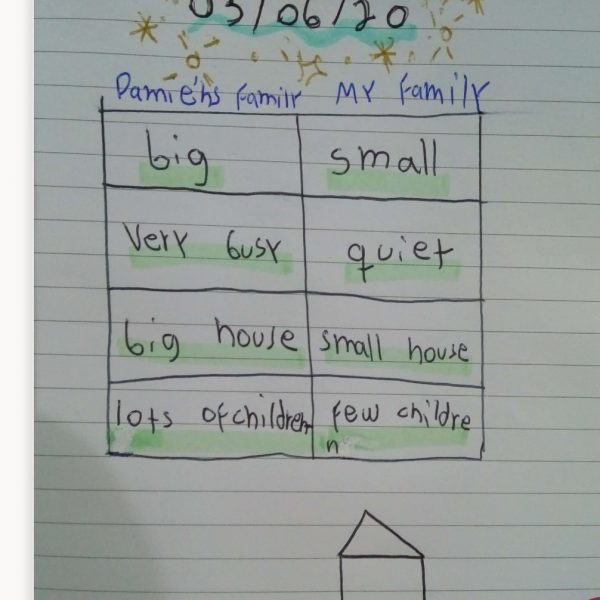 03/06/20
Damiéns Family My Family
big small
Very busy quiet
big house small house
lots of children few childre
n